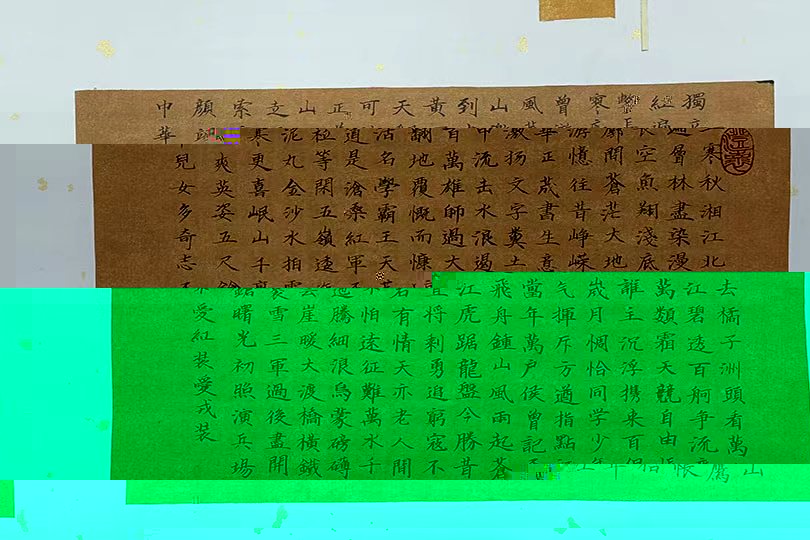 獨立寒秋湘江北去橘子洲頭看萬山
紅遍層林盡染漫江碧透百舸争流鷹
擊長空魚翔淺底萬類霜天競自由悵
寥廓問蒼茫大地誰主沉浮携来百侣
曾游憶往昔崢嶸歲月惆恰同学少年
風華正茂書生意气揮斥方遒指點江
山激扬文字糞土當年萬户侯曾記
到中流击水浪遏飛舟鍾山風雨起蒼
黄百萬雄師過大江虎踞龍盤今勝昔
天翻地覆慨而慷宜将剩勇追窮寇不
可沽名學霸王天若有情天亦老人間
正道是滄桑紅軍不怕遠征難萬水千
山衹等閑五嶺逶迤騰細浪烏蒙磅礴
走泥丸金沙水拍雲崖暖大渡橋横鐵
索寒更喜岷山千里雪三軍過後盡開
顔爽英姿五尺鎗曙光初照演兵場
中華兒女多奇志不愛紅装愛戎装